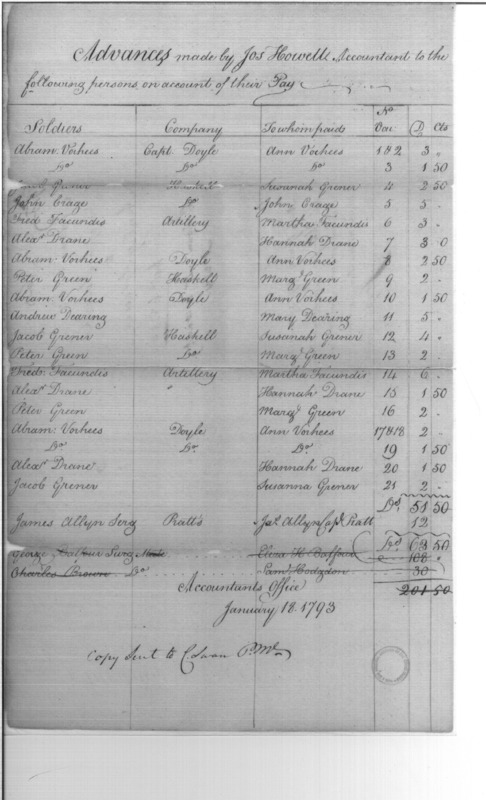 Advances made by Jos Howell Accountant to the
following persons on account of their Pay
Soldiers Company To whom paid No Vou D Cts
Abram Vorhees Capt Doyle Ann Vorhees 1&2 3 "
Do Do Do 3 1 50
Jacob Grener Haskell Susanah Grener 4 2 50
John Crage Do John Crage 5 5 "
Fred Facundis Artillery Martha Facundis 6 3 "
Alexr Drane Hannah Drane 7 3 0
Abram Vorhees Doyle Ann Vorhees 8 2 50
Peter Green Haskell Margt Green 9 2 "
Abram Vorhees Doyle Ann Vorhees 10 1 50
Andrew Dearing " Mary Dearing 11 5 "
Jacob Grener Haskell Susanah Grener 12 4 "
Peter Green Do Margt Green 13 2 "
Fredk Facundis Artillery Martha Facundis 14 6 "
Alexr Drane " Hannah Drane 15 1 50
Peter Green Margt Green 16 2 "
Abram Vorhees Doyle Ann Vorhees 17&18 2 "
Do Do Do 19 1 50
Alexr Drane Hannah Drane 20 1 50
Jacob Grener Susanna Grener 21 2 "
Dols 51 50
James Allyn Serg Pratt's Jas Allyn Capt Pratt 12
Dols 63 50
George Balfour Surg Mate Balfour 108 "
Charles Brown Do Saml Hodgdon 30
Accountants Office 201 50
January 18. 1793
Copy sent to C Swan P. Mr